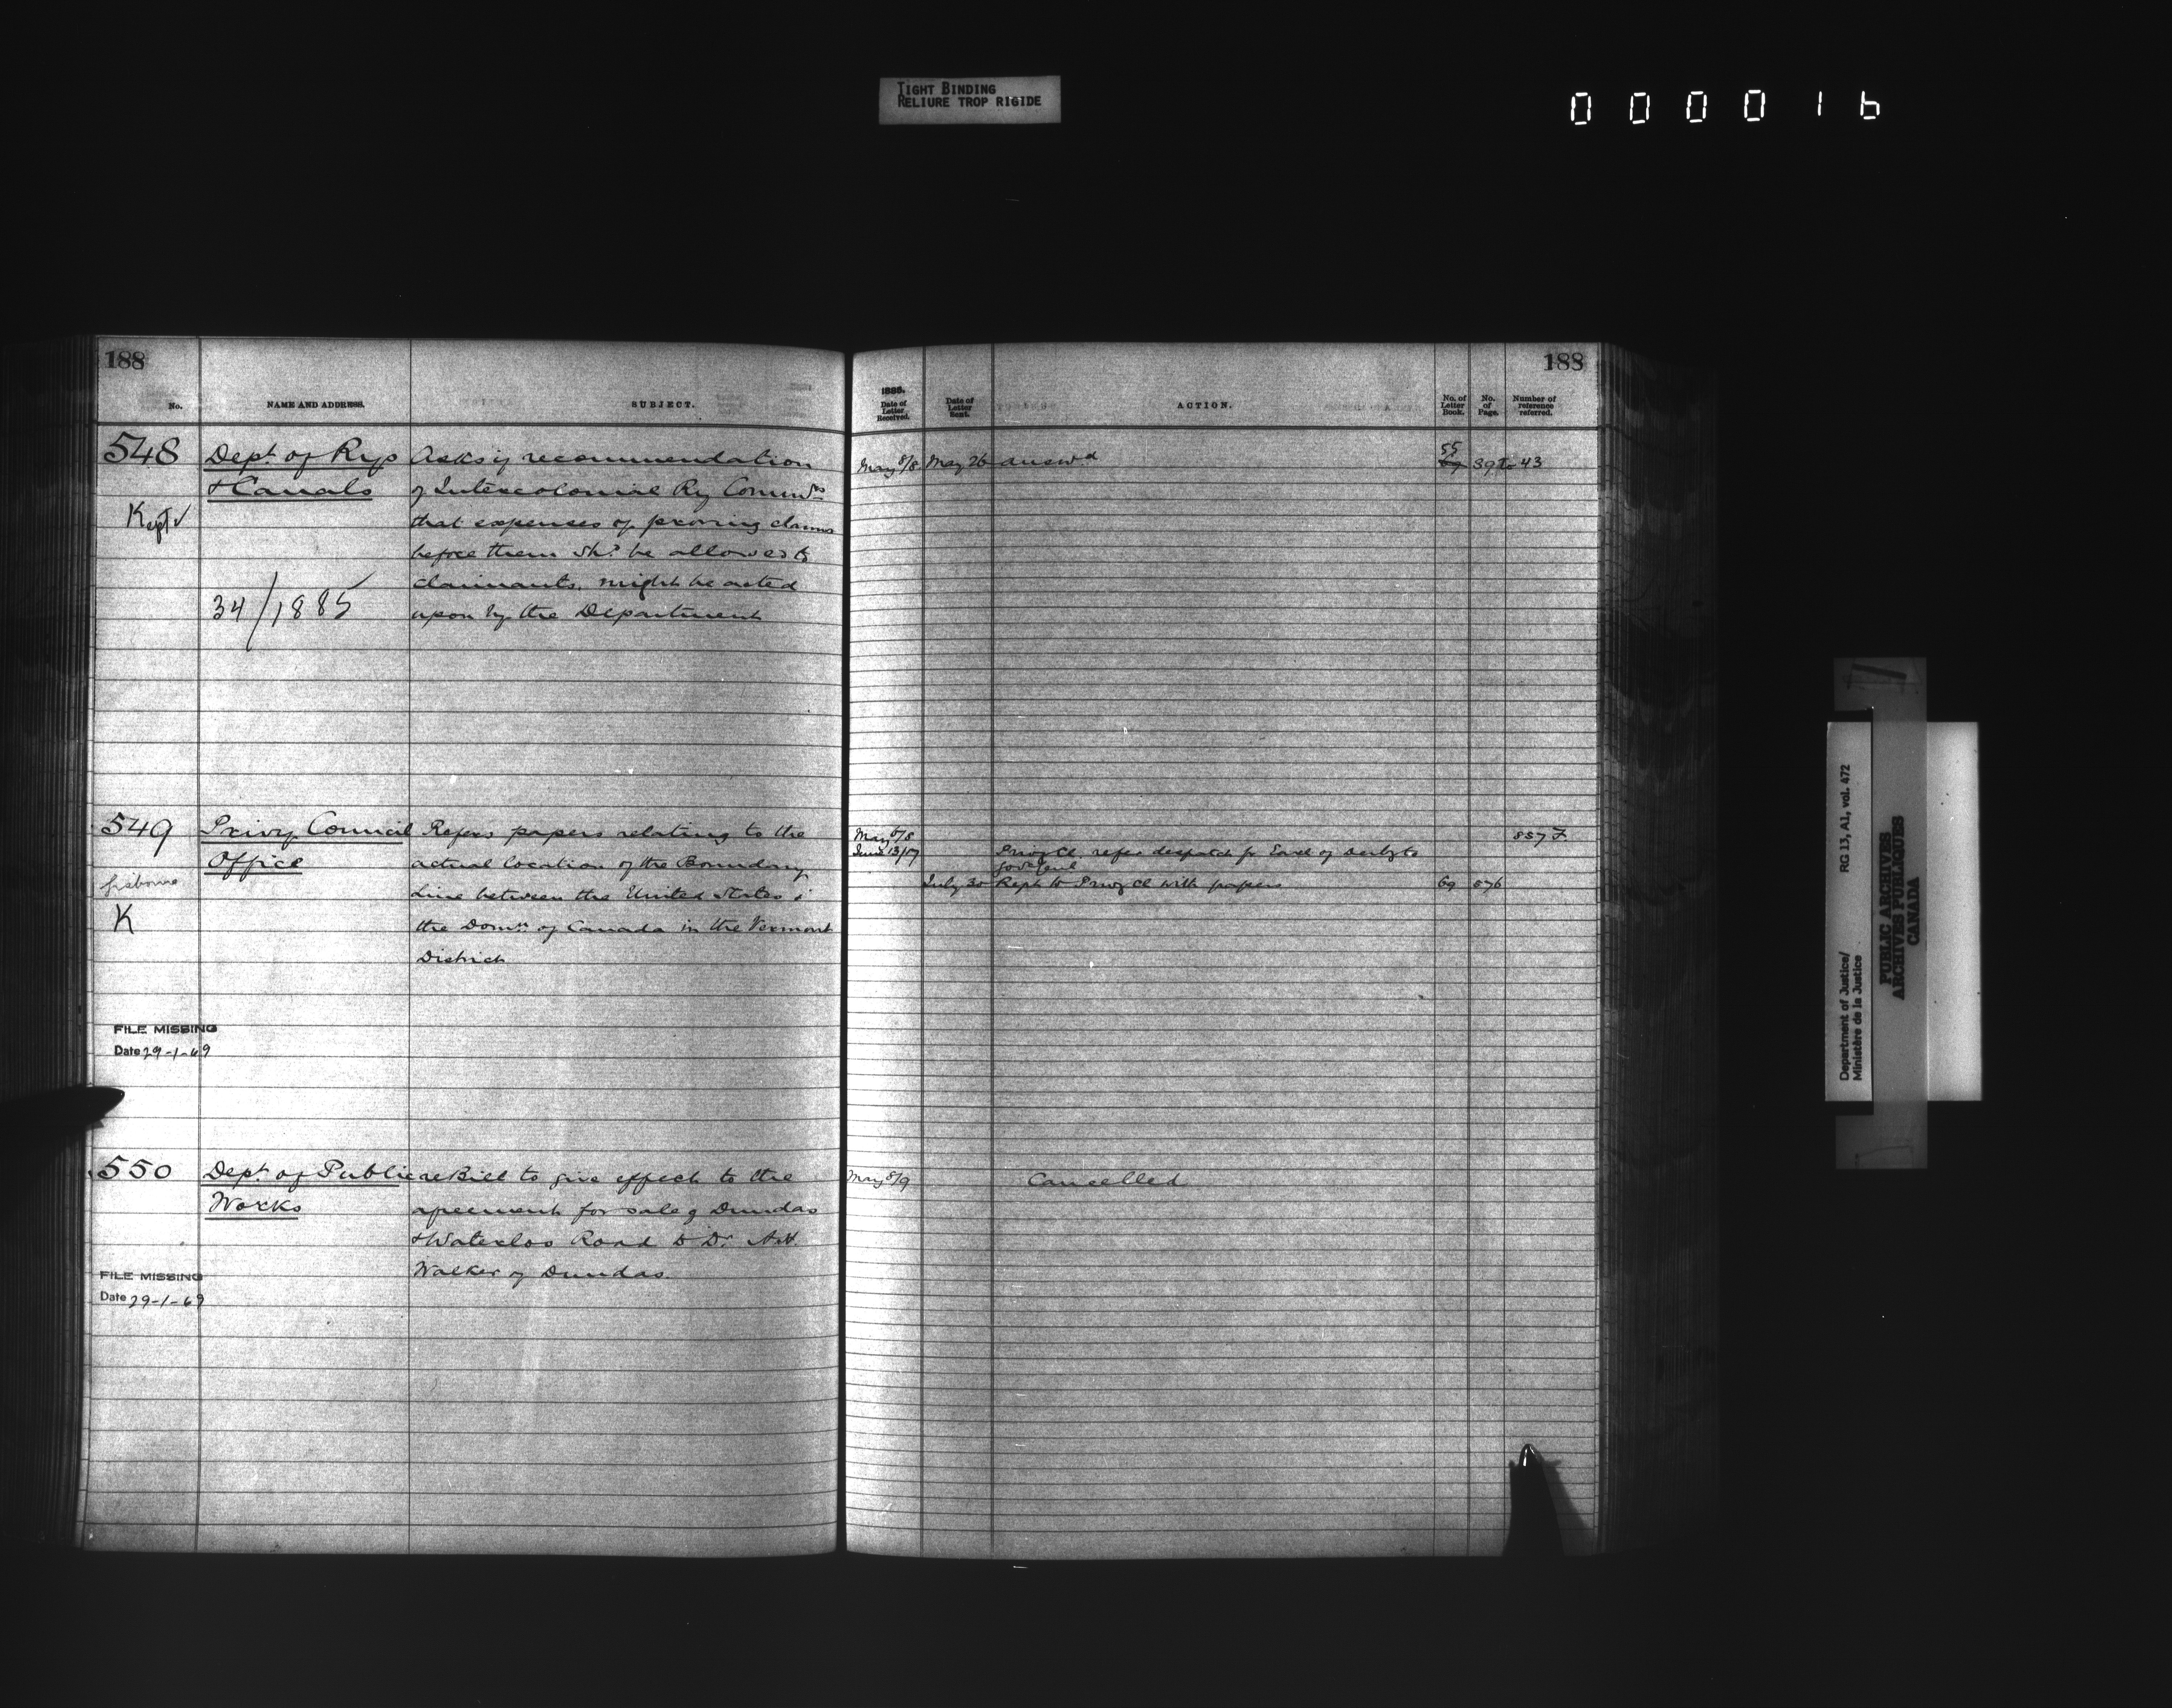 TIGHT BINDING
RELIURE TROP RIGIDE
000016
188
No.
NAME AND ADDRESS.
SUBJECT.
548
Dept. of Rys
& Canals
Kept
34/1885
Asks if recommendation
of Intercolonial Ry Commrs
that expenses of proving claims
before them shd be allowed to
claimants, might be acted
upon by the Department
549
Privy Council
Office
K
Refers papers relating to the
actual location of the Boundary
Line between the United States &
the Domn. of Canada in the Vermont
District
FILE MISSING
Date 29-1-69
550
Dept. of Public
Works
re Bill to give effect to the
agreement for sale of Dundas
& Waterloo Road to Dr.
Walker of Dundas.
FILE MISSING
Date 29-1-69
188
1885.
Date of Letter Received.
Date of Letter Sent.
ACTION.
No. of Letter Book.
No. of Page.
Number of reference referred.
May 8/8
May 26
answd
55
39 to 43
May 6/8
857 F.
June 13/17
Privy Cl. refer despatch fr Earl of Derby to
Gov Genl
July 30
Rept to Privy Cl with papers
69
576
May 8/9
Cancelled
RG 13, A1, vol. 472
Department of Justice/
Ministère de la Justice
PUBLIC ARCHIVES
ARCHIVES PUBLIQUES
CANADA